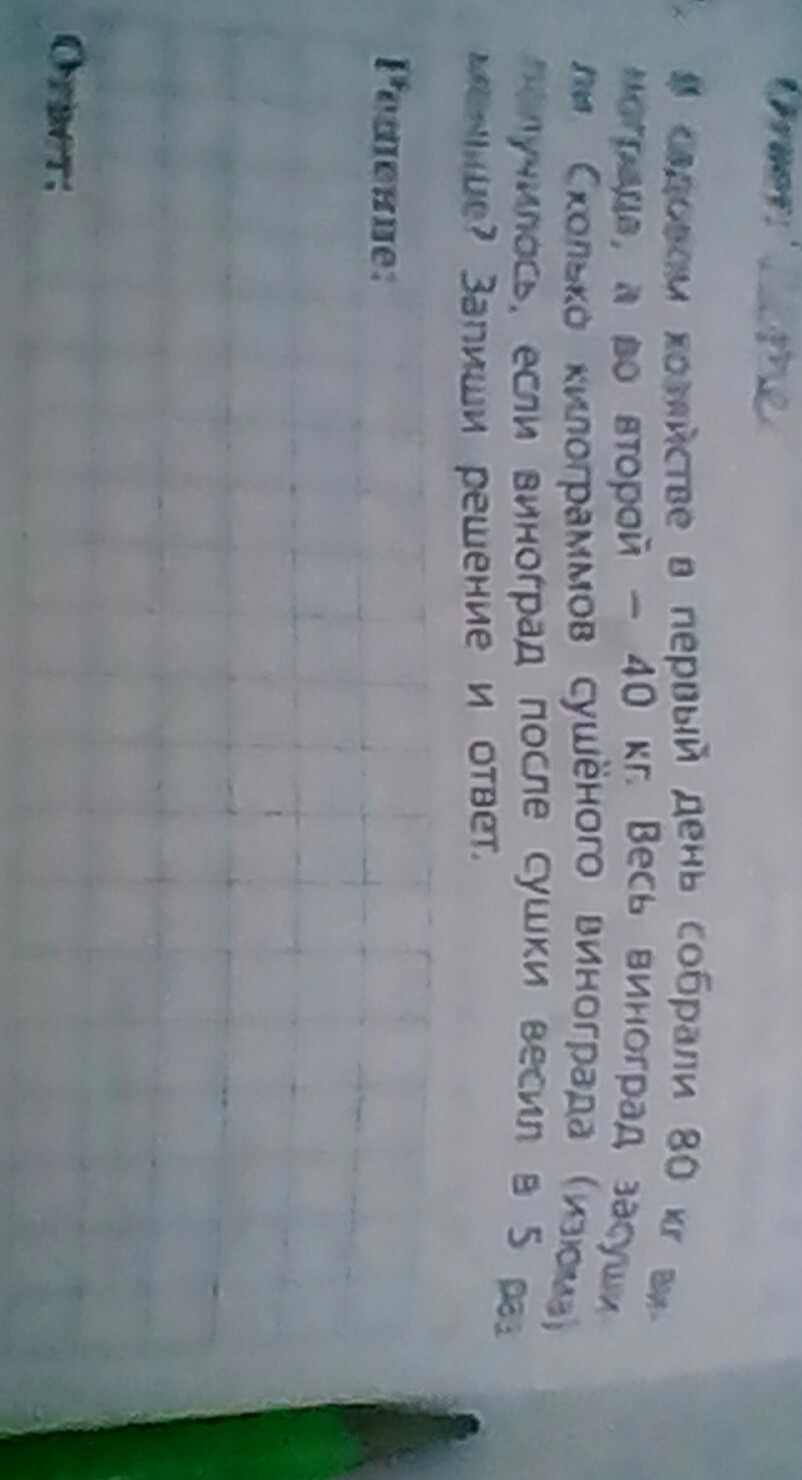 Ответ:
В садовом хозяйстве в первый день собрали 80 кг ви-
нограда, а во второй – 40 кг. Весь виноград засуши
ли Сколько килограммов сушёного винограда (изюма)
получилось, если виноград после сушки весил в 5 раз
меньше? Запиши решение и ответ.
Решение:
Ответ: